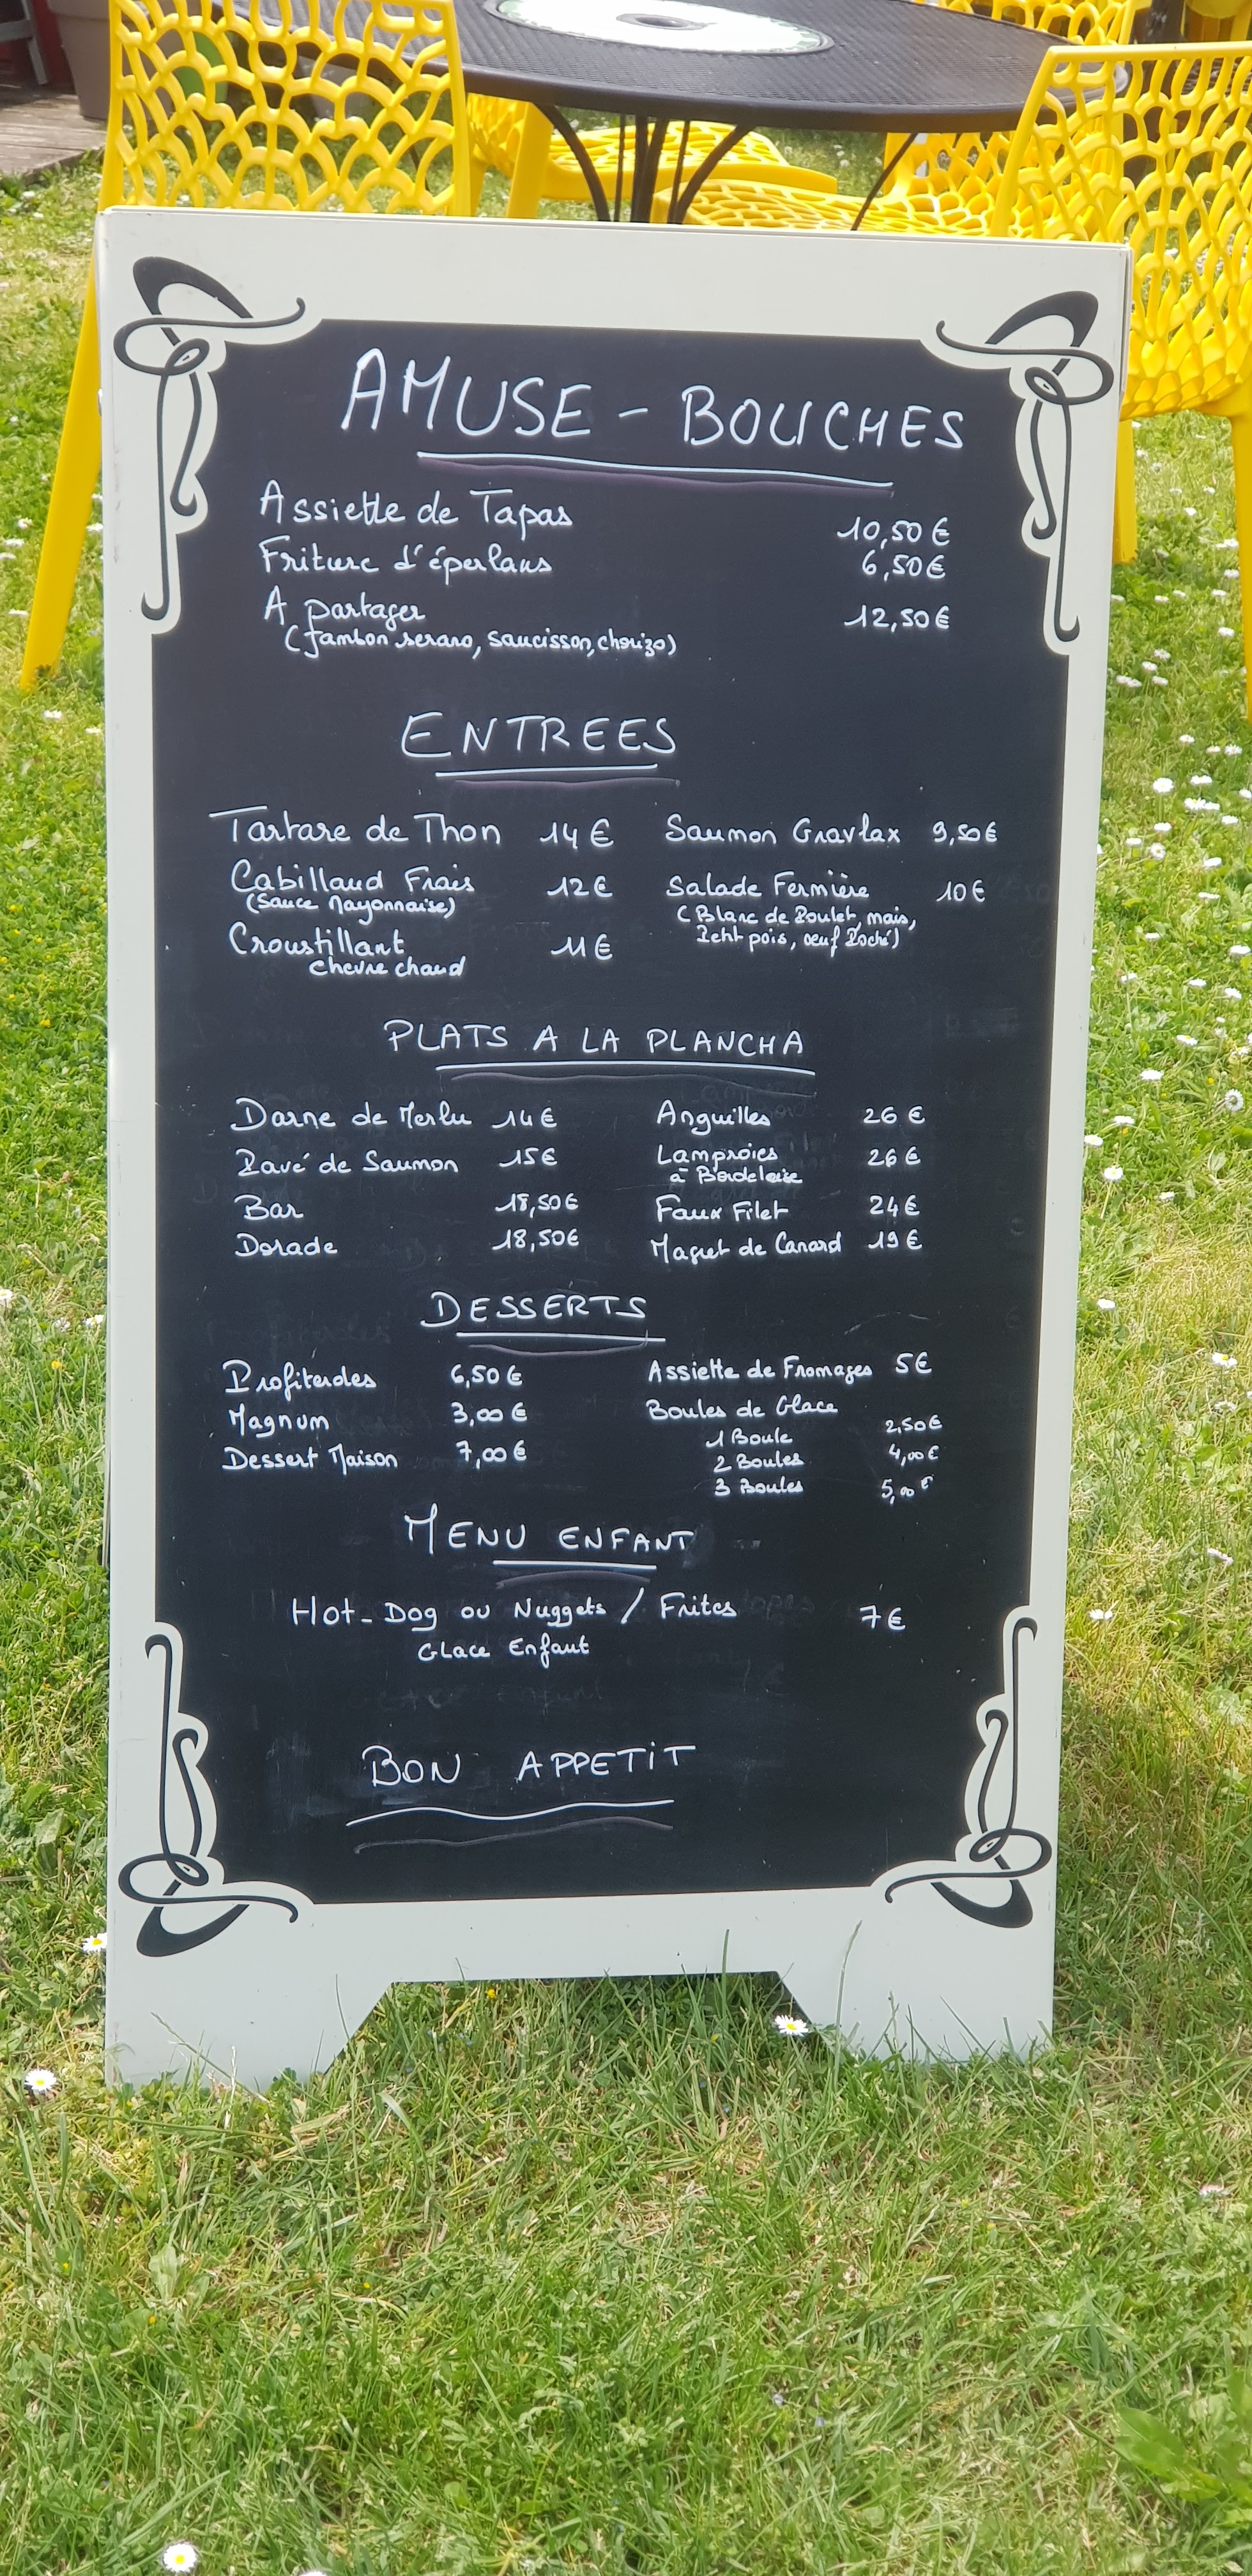 AMUSE - BOUCHES
Assiette de Tapas 10,50€
Friture d'éperlans 6,50€
A partager 12,50€
(Jambon serano, saucisson, chorizo)
ENTREES
Tartare de Thon 14€ Saumon Gravlax 9,50€
Cabillaud Frais 12€ Salade Fermière 10€
(Sauce Mayonnaise) (Blanc de Poulet, mais,
Petit pois, œuf Poché)
Croustillant 11€
chevre chaud
PLATS A LA PLANCHA
Darne de Merlu 14€ Anguilles 26€
Pavé de Saumon 15€ Lamproies 26€
à Bordelaise
Bar 18,50€ Faux Filet 24€
Dorade 18,50€ Magret de Canard 19€
DESSERTS
Profiteroles 6,50€ Assiette de Fromages 5€
Magnum 3,00€ Boules de Glace
1 Boule 2,50€
Dessert Maison 7,00€ 2 Boules 4,00€
3 Boules 5,00€
MENU ENFANT
Hot-Dog ou Nuggets / Frites 7€
Glace Enfant
BON APPETIT